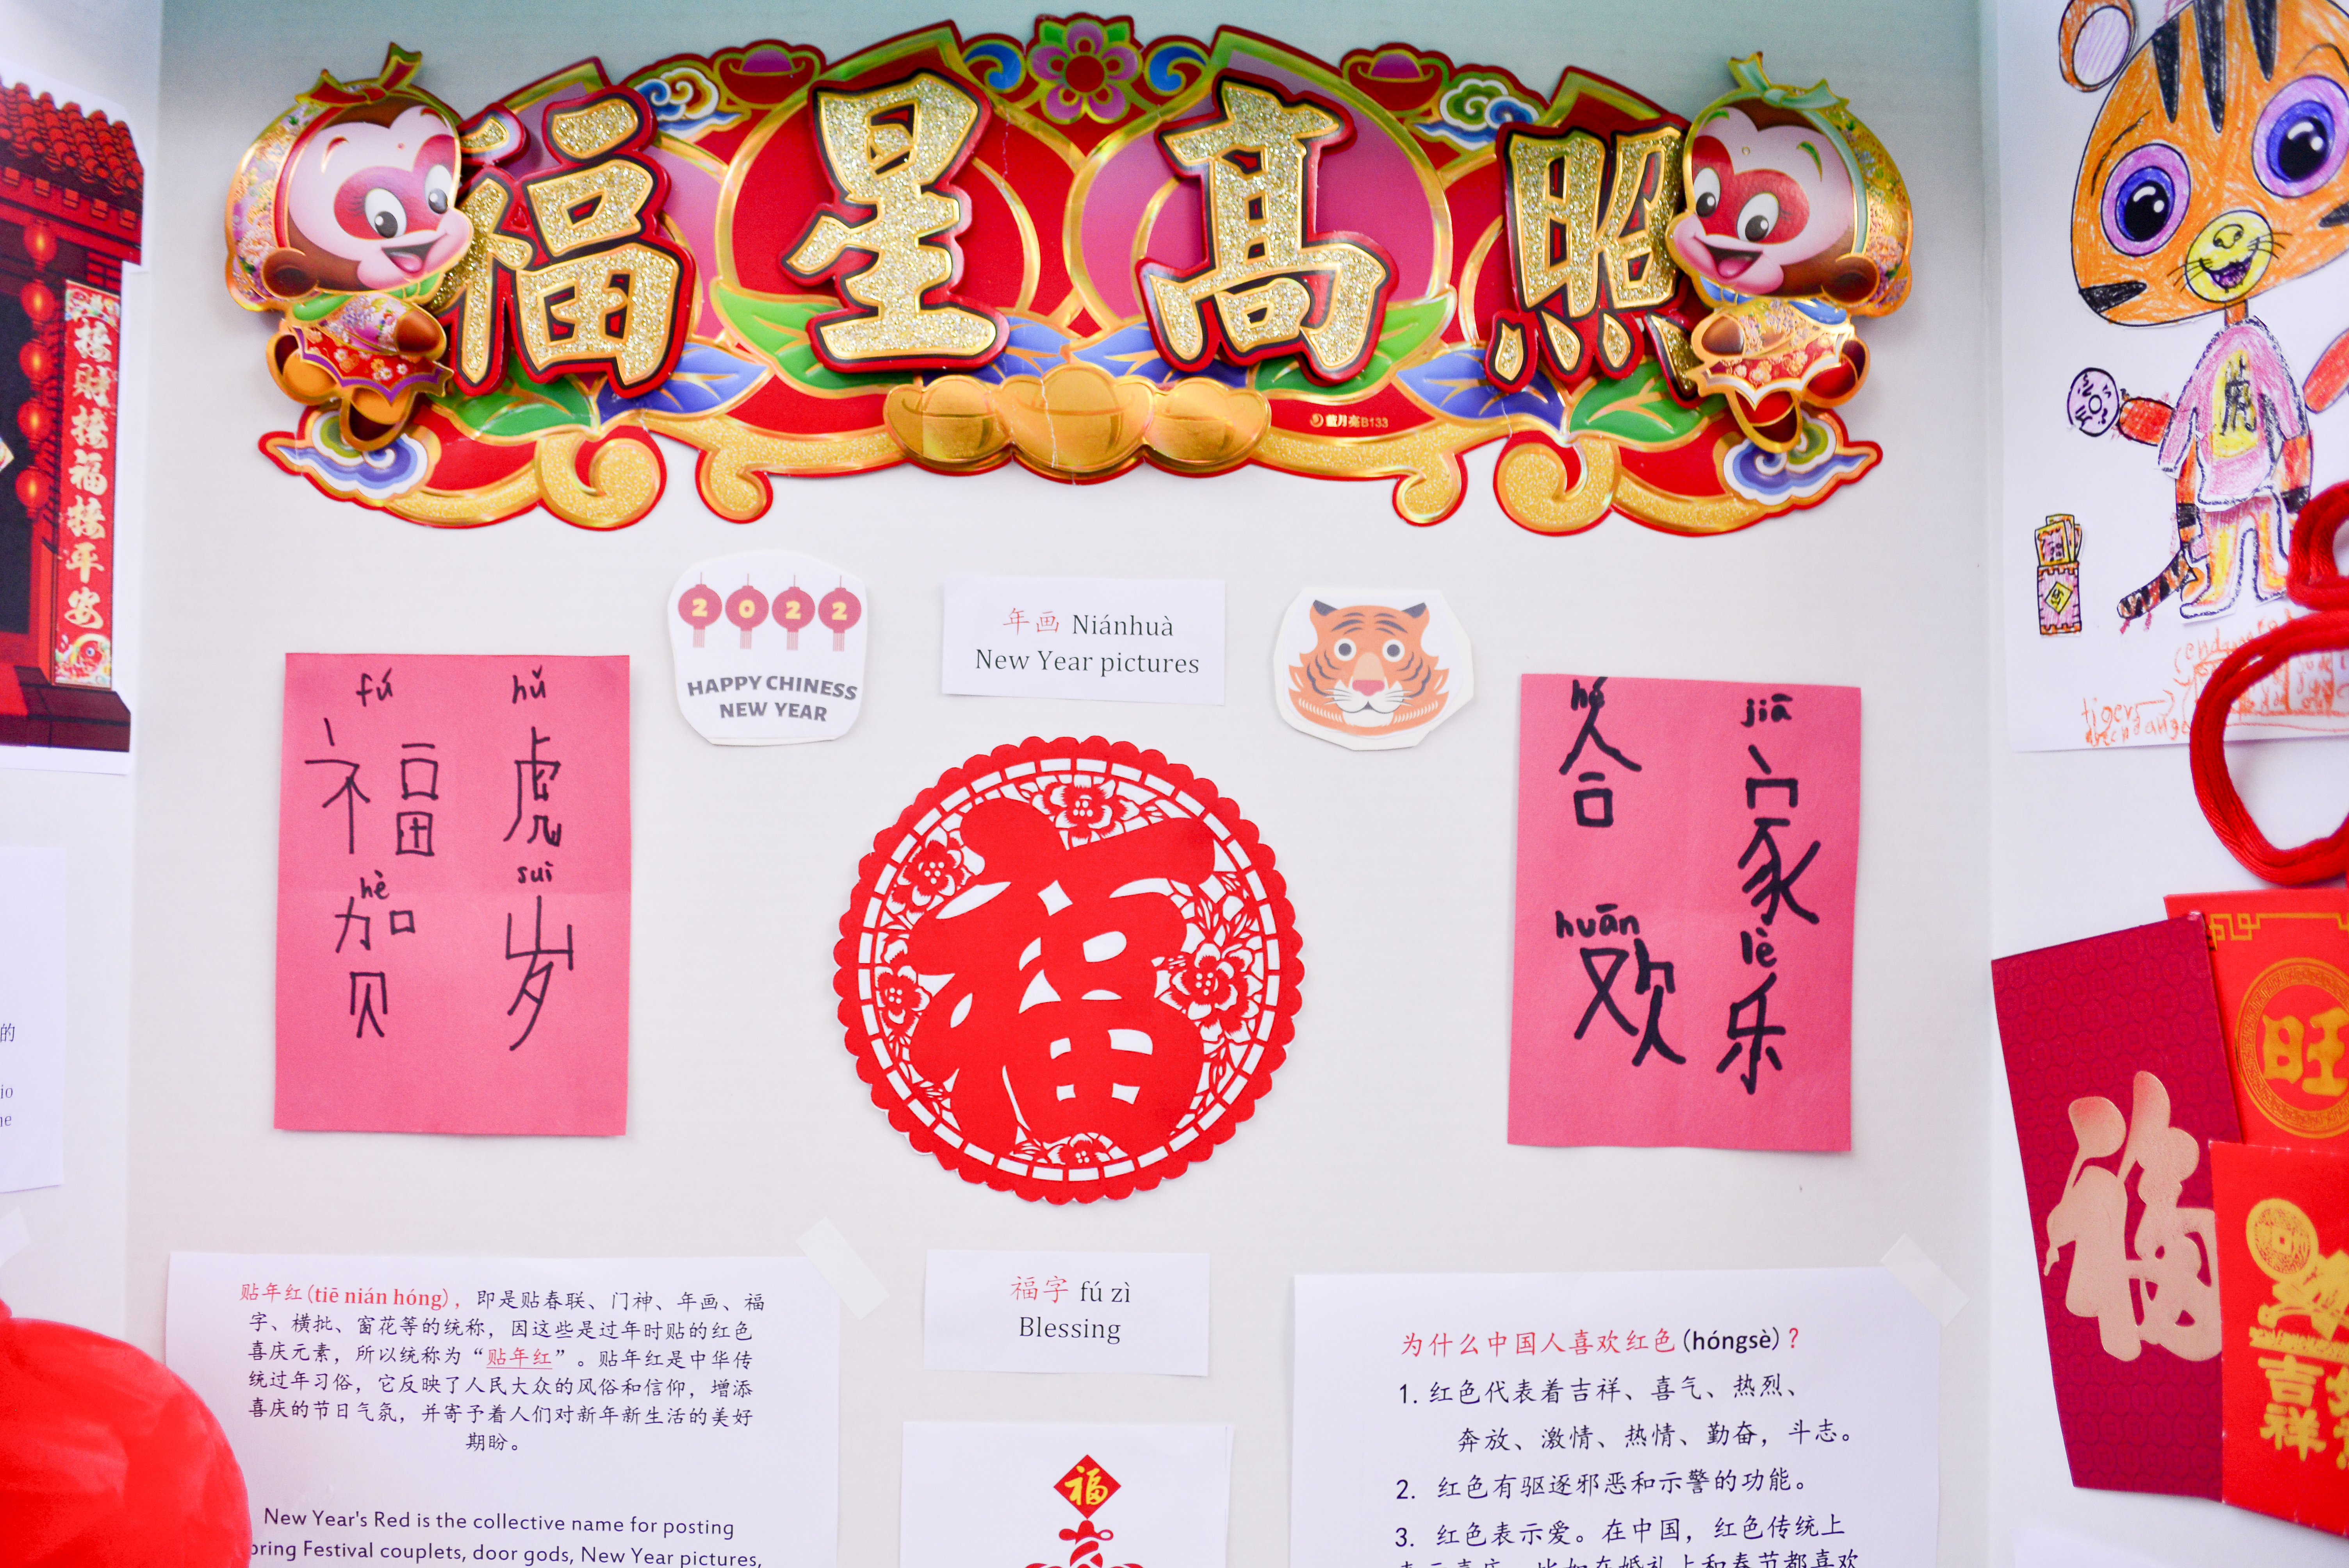 福星高照
藍月亮B133
接财接福接平安
2022
HAPPY CHINESS
NEW YEAR
年画 Niánhuà
New Year pictures
虎
fú hǔ
福 虎
hè suì
贺 岁
hé jiā
合 家
huān lè
欢 乐
福
福字 fú zì
Blessing
福
贴年红(tiē nián hóng)，即是贴春联、门神、年画、福
字、横批、窗花等的统称，因这些是过年时贴的红色
喜庆元素，所以统称为“贴年红”。贴年红是中华传
统过年习俗，它反映了人民大众的风俗和信仰，增添
喜庆的节日气氛，并寄予着人们对新年新生活的美好
期盼。
New Year's Red is the collective name for posting
pring Festival couplets, door gods, New Year pictures,
为什么中国人喜欢红色(hóngsè)？
1. 红色代表着吉祥、喜气、热烈、
奔放、激情、热情、勤奋，斗志。
2. 红色有驱逐邪恶和示警的功能。
3. 红色表示爱。在中国，红色传统上
表示喜庆，比如在婚礼上和春节都喜欢
tiger
旺
福
吉祥
的